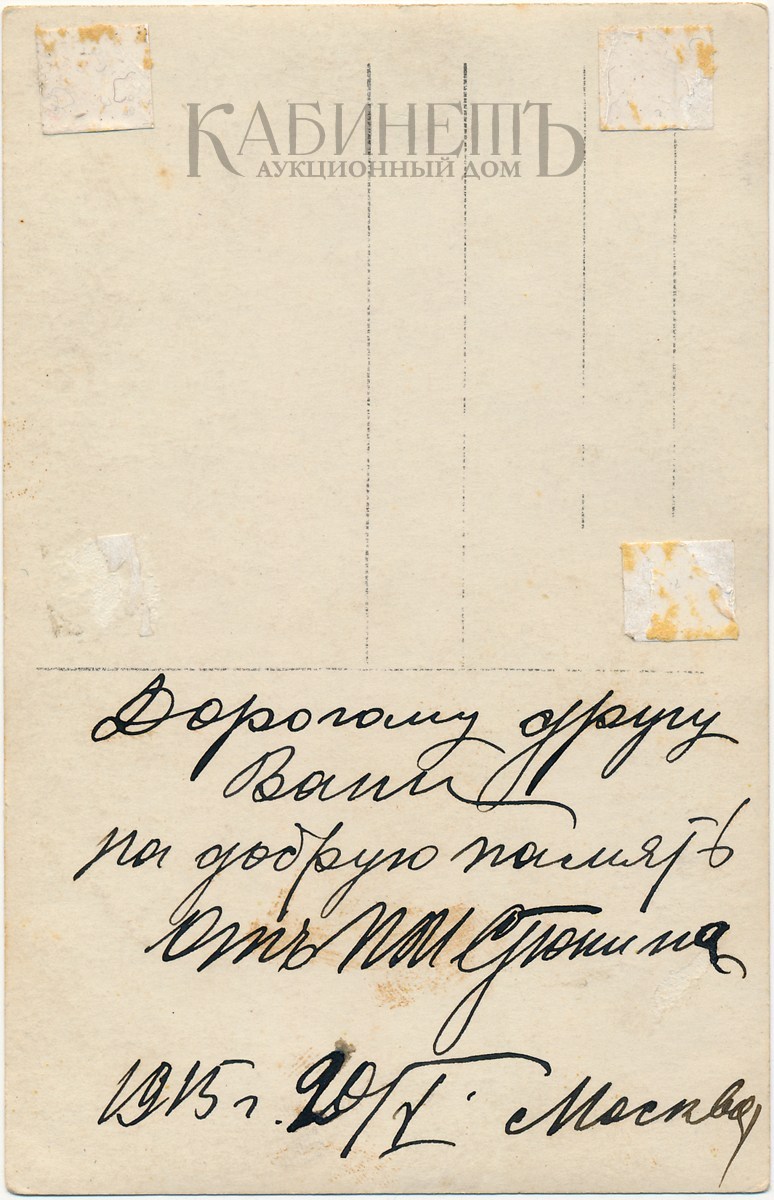 КАБИНЕТЪ
АУКЦИОННЫЙ ДОМ
Дорогому другу
Вани
на добрую память
Отъ ПМ Стюнина
1915 г. 20/V. Москва